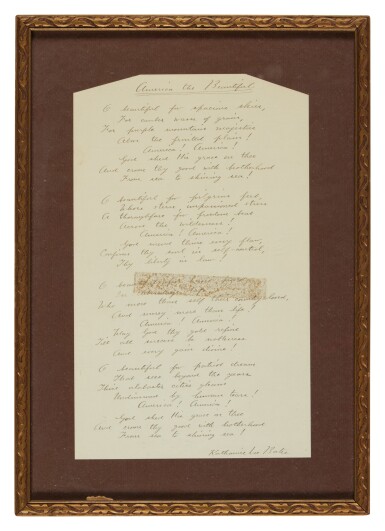 America the Beautiful
O beautiful for spacious skies,
For amber waves of grain,
For purple mountain majesties
Above the fruited plain!
America! America!
God shed His grace on thee
And crown thy good with brotherhood
From sea to shining sea!
O beautiful for pilgrim feet,
Whose stern, impassioned stress
A thoroughfare for freedom beat
Across the wilderness!
America! America!
God mend thine every flaw,
Confirm thy soul in self-control,
Thy liberty in law!
O
Who more than self their country loved,
And mercy more than life!
America! America!
May God thy gold refine
Till all success be nobleness
And every gain divine!
O beautiful for patriot dream
That sees beyond the years
Thine alabaster cities gleam
Undimmed by human tears!
America! America!
God shed His grace on thee
And crown thy good with brotherhood
From sea to shining sea!
Katharine Lee Bates